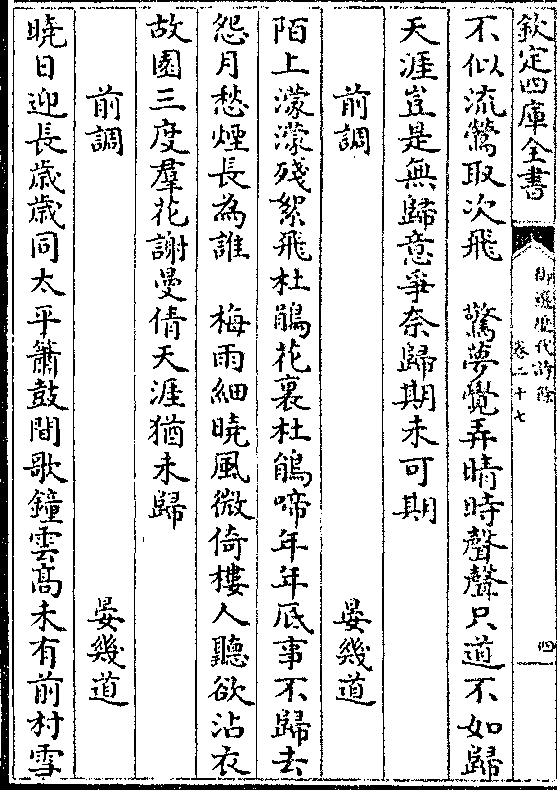 欽定四庫全書
御選歷代詩餘
卷二十七
四
不似流鶯取次飛　驚夢覺弄晴時聲聲只道不如歸
天涯豈是無歸意爭奈歸期未可期
前調　晏幾道
陌上濛濛殘絮飛杜鵑花裏杜鵑啼年年底事不歸去
怨月愁煙長為誰　梅雨細曉風微倚樓人聽欲沾衣
故園三度羣花謝曼倩天涯猶未歸
前調　晏幾道
曉日迎長歲歲同太平簫鼓間歌鐘雲高未有前村雪